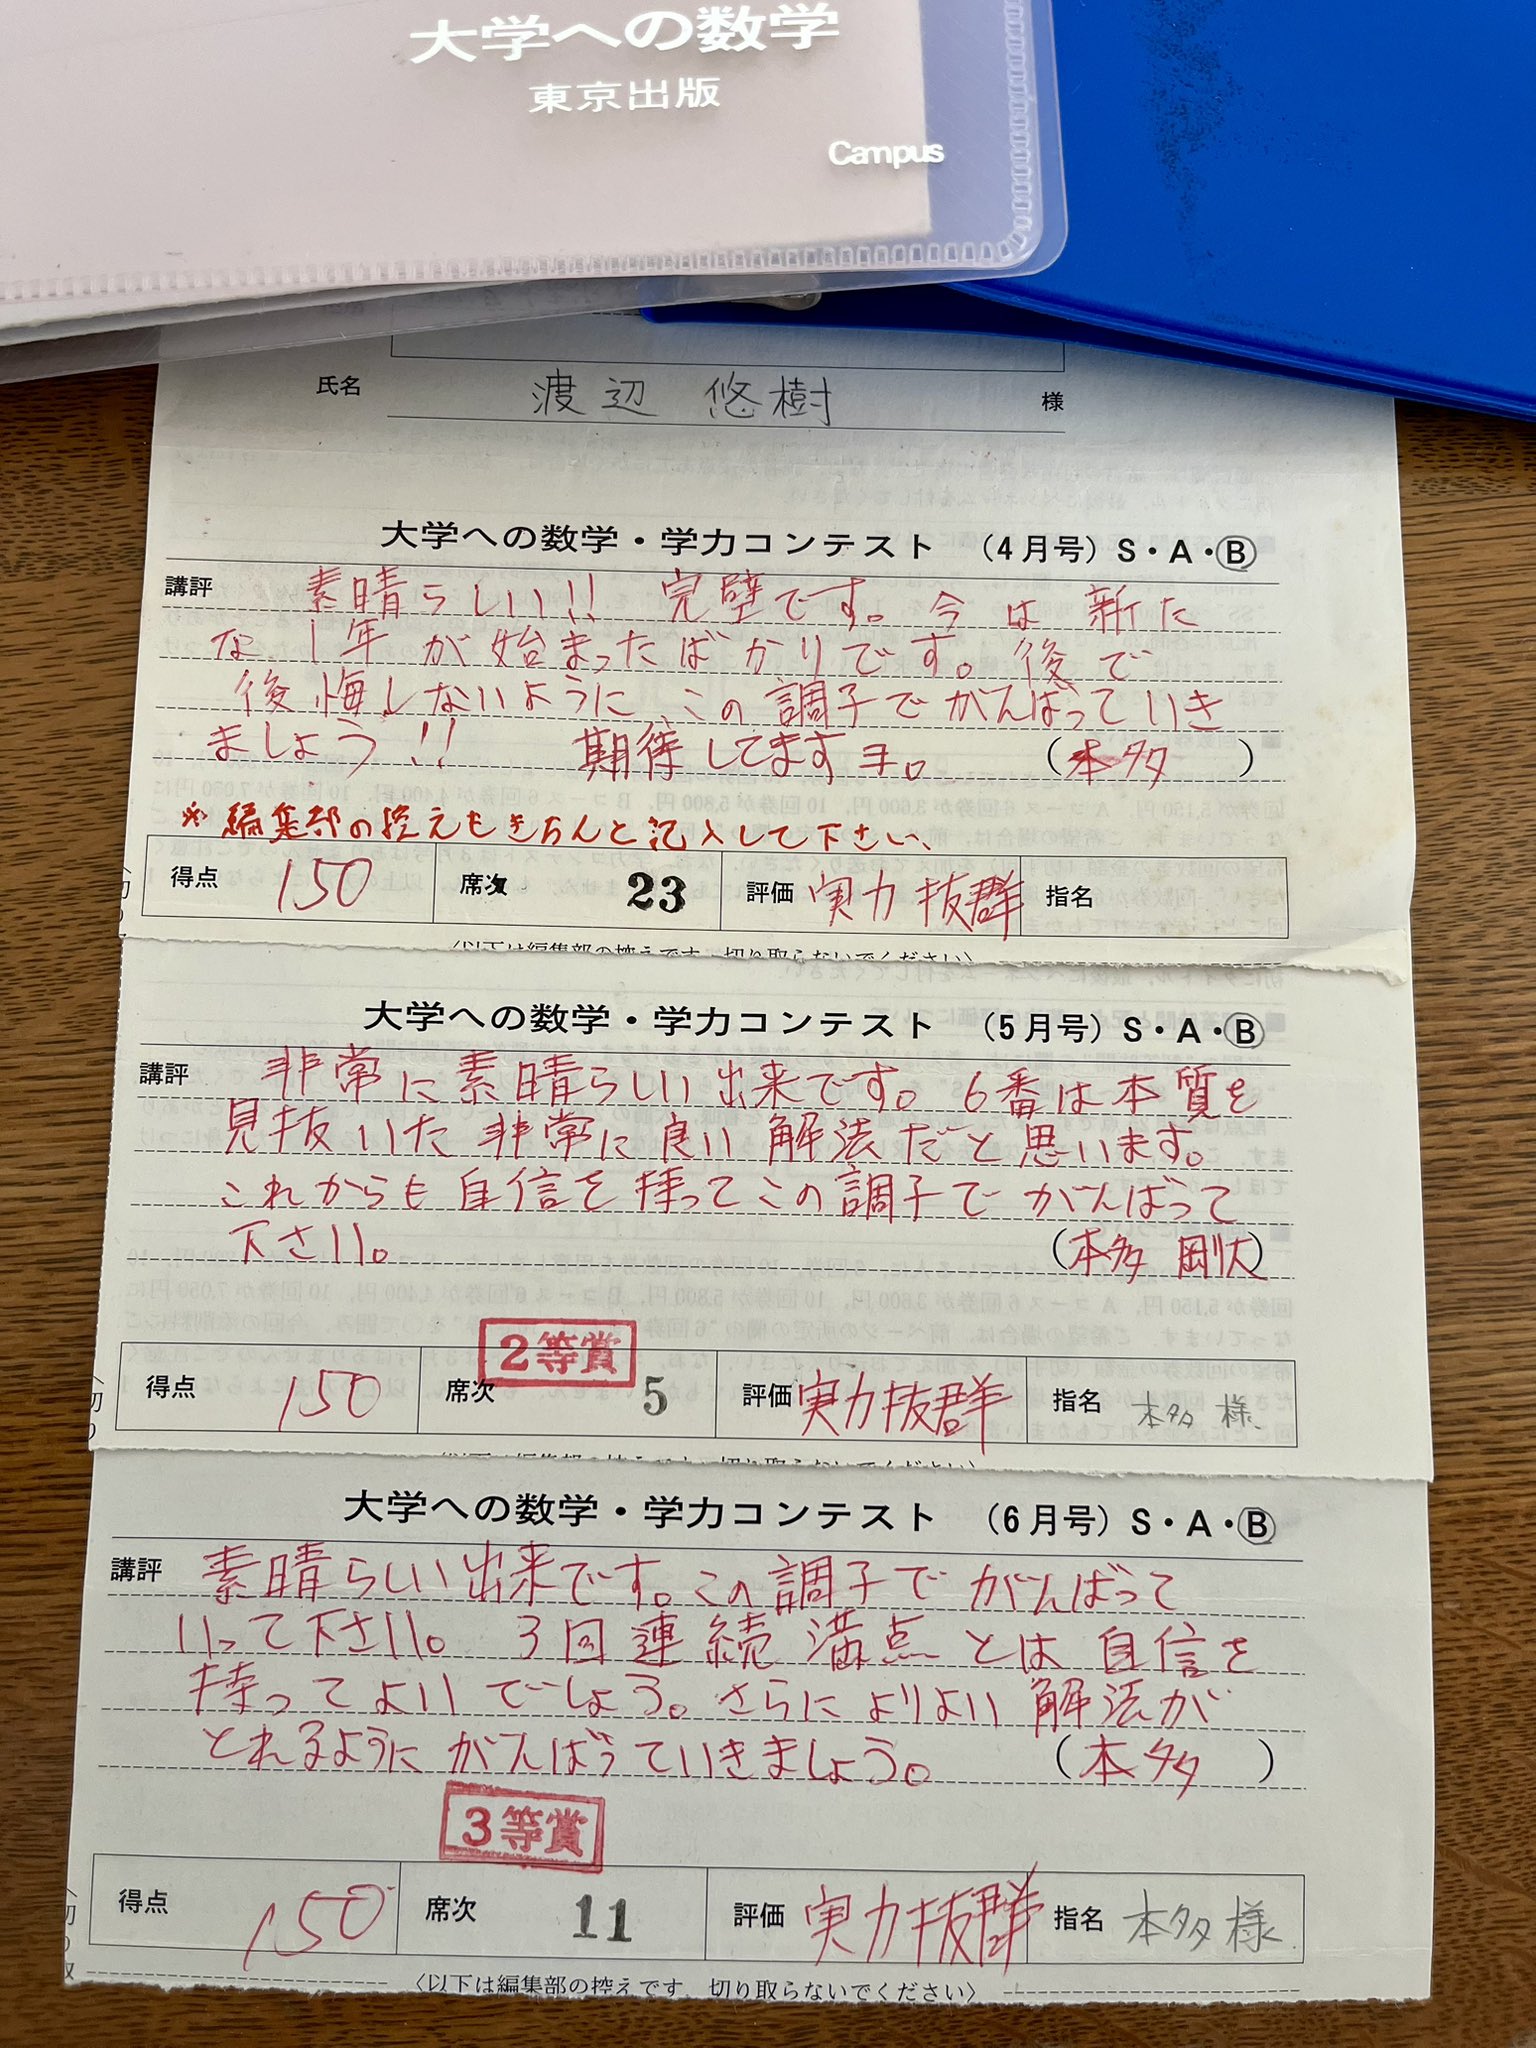 大学への数学
東京出版
Campus
氏名 渡辺 悠樹 様
大学への数学・学力コンテスト (4月号) S・A・B
講評 素晴らしい!! 完璧です。今は新た
な1年が始まったばかりです。後で
後悔しないように、この調子でがんばっていき
ましょう!! 期待してますヨ。 (本多 )
※編集部の控えもきちんと記入して下さい、
得点 150 席次 23 評価 実力抜群 指名
〈以下は編集部の控えです 切り取らないでください〉
大学への数学・学力コンテスト (5月号) S・A・B
講評 非常に素晴らしい出来です。6番は本質を
見抜いた非常に良い解法だと思います。
これからも自信を持ってこの調子でがんばって
下さい。 (本多 剛大)
2等賞
得点 150 席次 5 評価 実力抜群 指名 本多様
大学への数学・学力コンテスト (6月号) S・A・B
講評 素晴らしい出来です。この調子でがんばって
いって下さい。 3回連続満点とは自信を
持ってよいでしょう。さらによりよい解法が
とれるようにがんばっていきましょう。 (本多 )
3等賞
得点 150 席次 11 評価 実力抜群 指名 本多様
〈以下は編集部の控えです 切り取らないでください〉